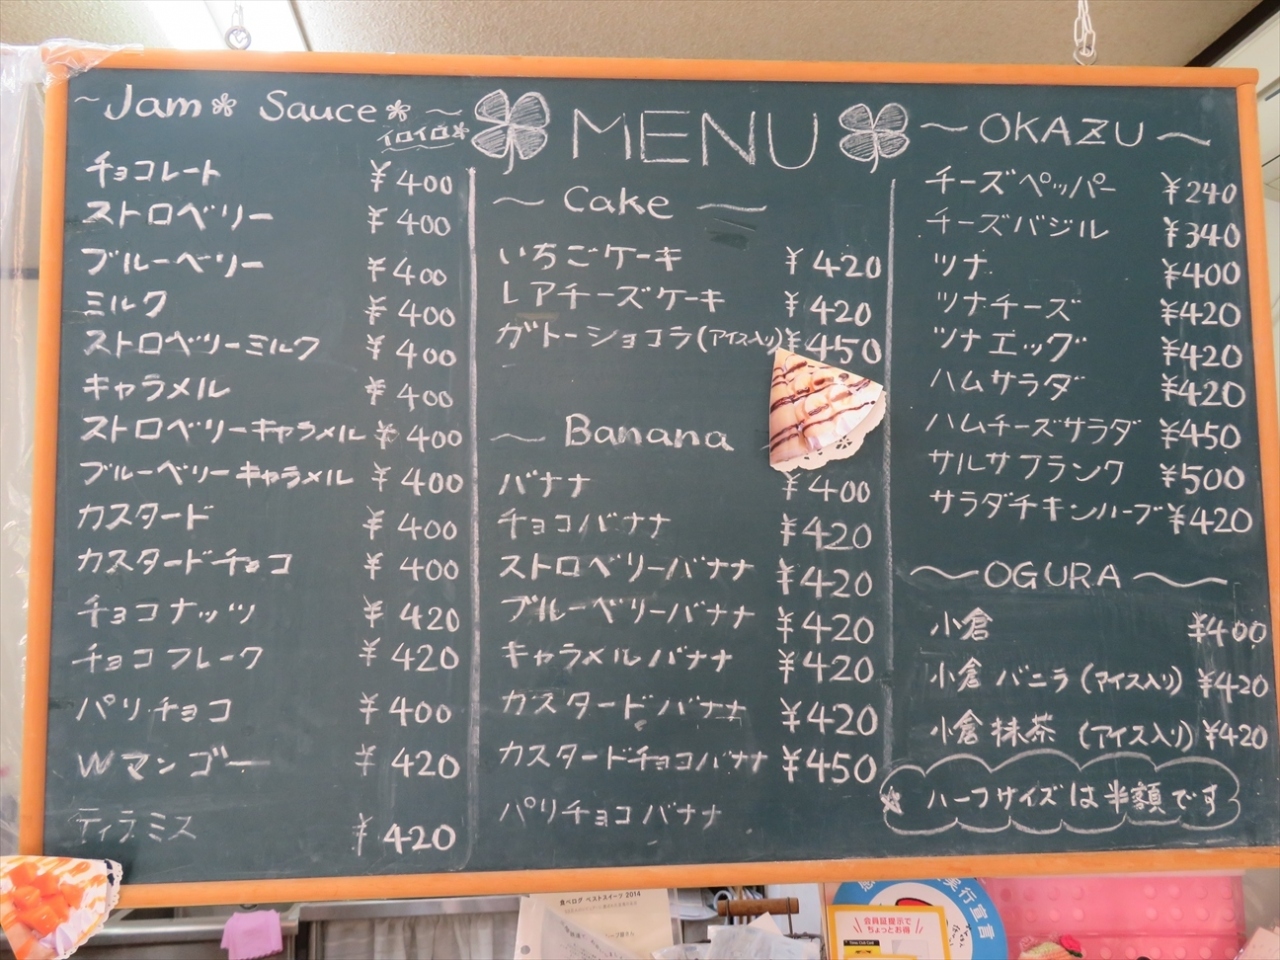 ~Jam* Sauce* ~
イロイロ*
チョコレート ¥400
ストロベリー ¥400
ブルーベリー ¥400
ミルク ¥400
ストロベリーミルク ¥400
キャラメル ¥400
ストロベリーキャラメル ¥400
ブルーベリーキャラメル ¥400
カスタード ¥400
カスタードチョコ ¥400
チョコナッツ ¥420
チョコフレーク ¥420
パリチョコ ¥400
Wマンゴー ¥420
ティラミス ¥420
MENU
~ Cake ~
いちごケーキ ¥420
レアチーズケーキ ¥420
ガトーショコラ(アイス入り) ¥450
~ Banana
バナナ ¥400
チョコバナナ ¥420
ストロベリーバナナ ¥420
ブルーベリーバナナ ¥420
キャラメルバナナ ¥420
カスタードバナナ ¥420
カスタードチョコバナナ ¥450
パリチョコバナナ
~ OKAZU ~
チーズペッパー ¥240
チーズバジル ¥340
ツナ ¥400
ツナチーズ ¥420
ツナエッグ ¥420
ハムサラダ ¥420
ハムチーズサラダ ¥450
サルサフランク ¥500
サラダチキンハーブ ¥420
~OGURA~
小倉 ¥400
小倉バニラ(アイス入り) ¥420
小倉抹茶 (アイス入り) ¥420
ハーフサイズは半額です
食べログ ベストスイーツ 2014
実行宣言
会員証提示で
ちょっとお得